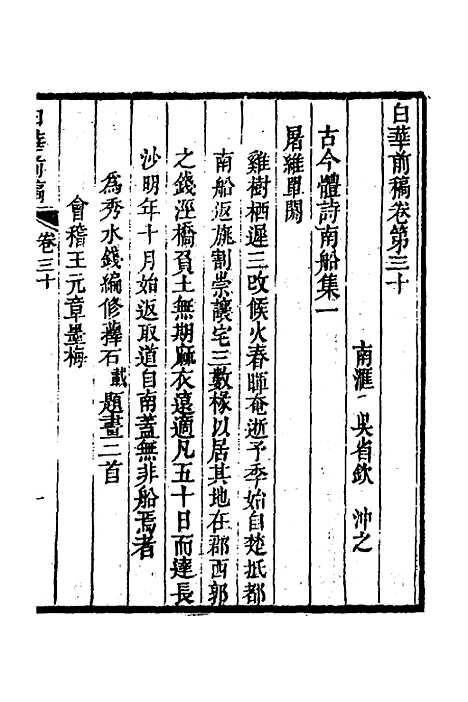 白華前稿卷第三十
南滙 吳省欽 沖之
古今體詩南船集一
屠維單閼
雞樹栖遲三改候火春暉奄逝予季始自楚抵都
南船返旐割崇讓宅三數椽以居其地在郡西郭
之錢涇橋負土無期麻衣遠適凡五十日而達長
沙明年十月始返取道自南蓋無非船焉者
為秀水錢編修蘀石載題畫二首
會稽王元章墨梅
白華前稿
卷三十
一